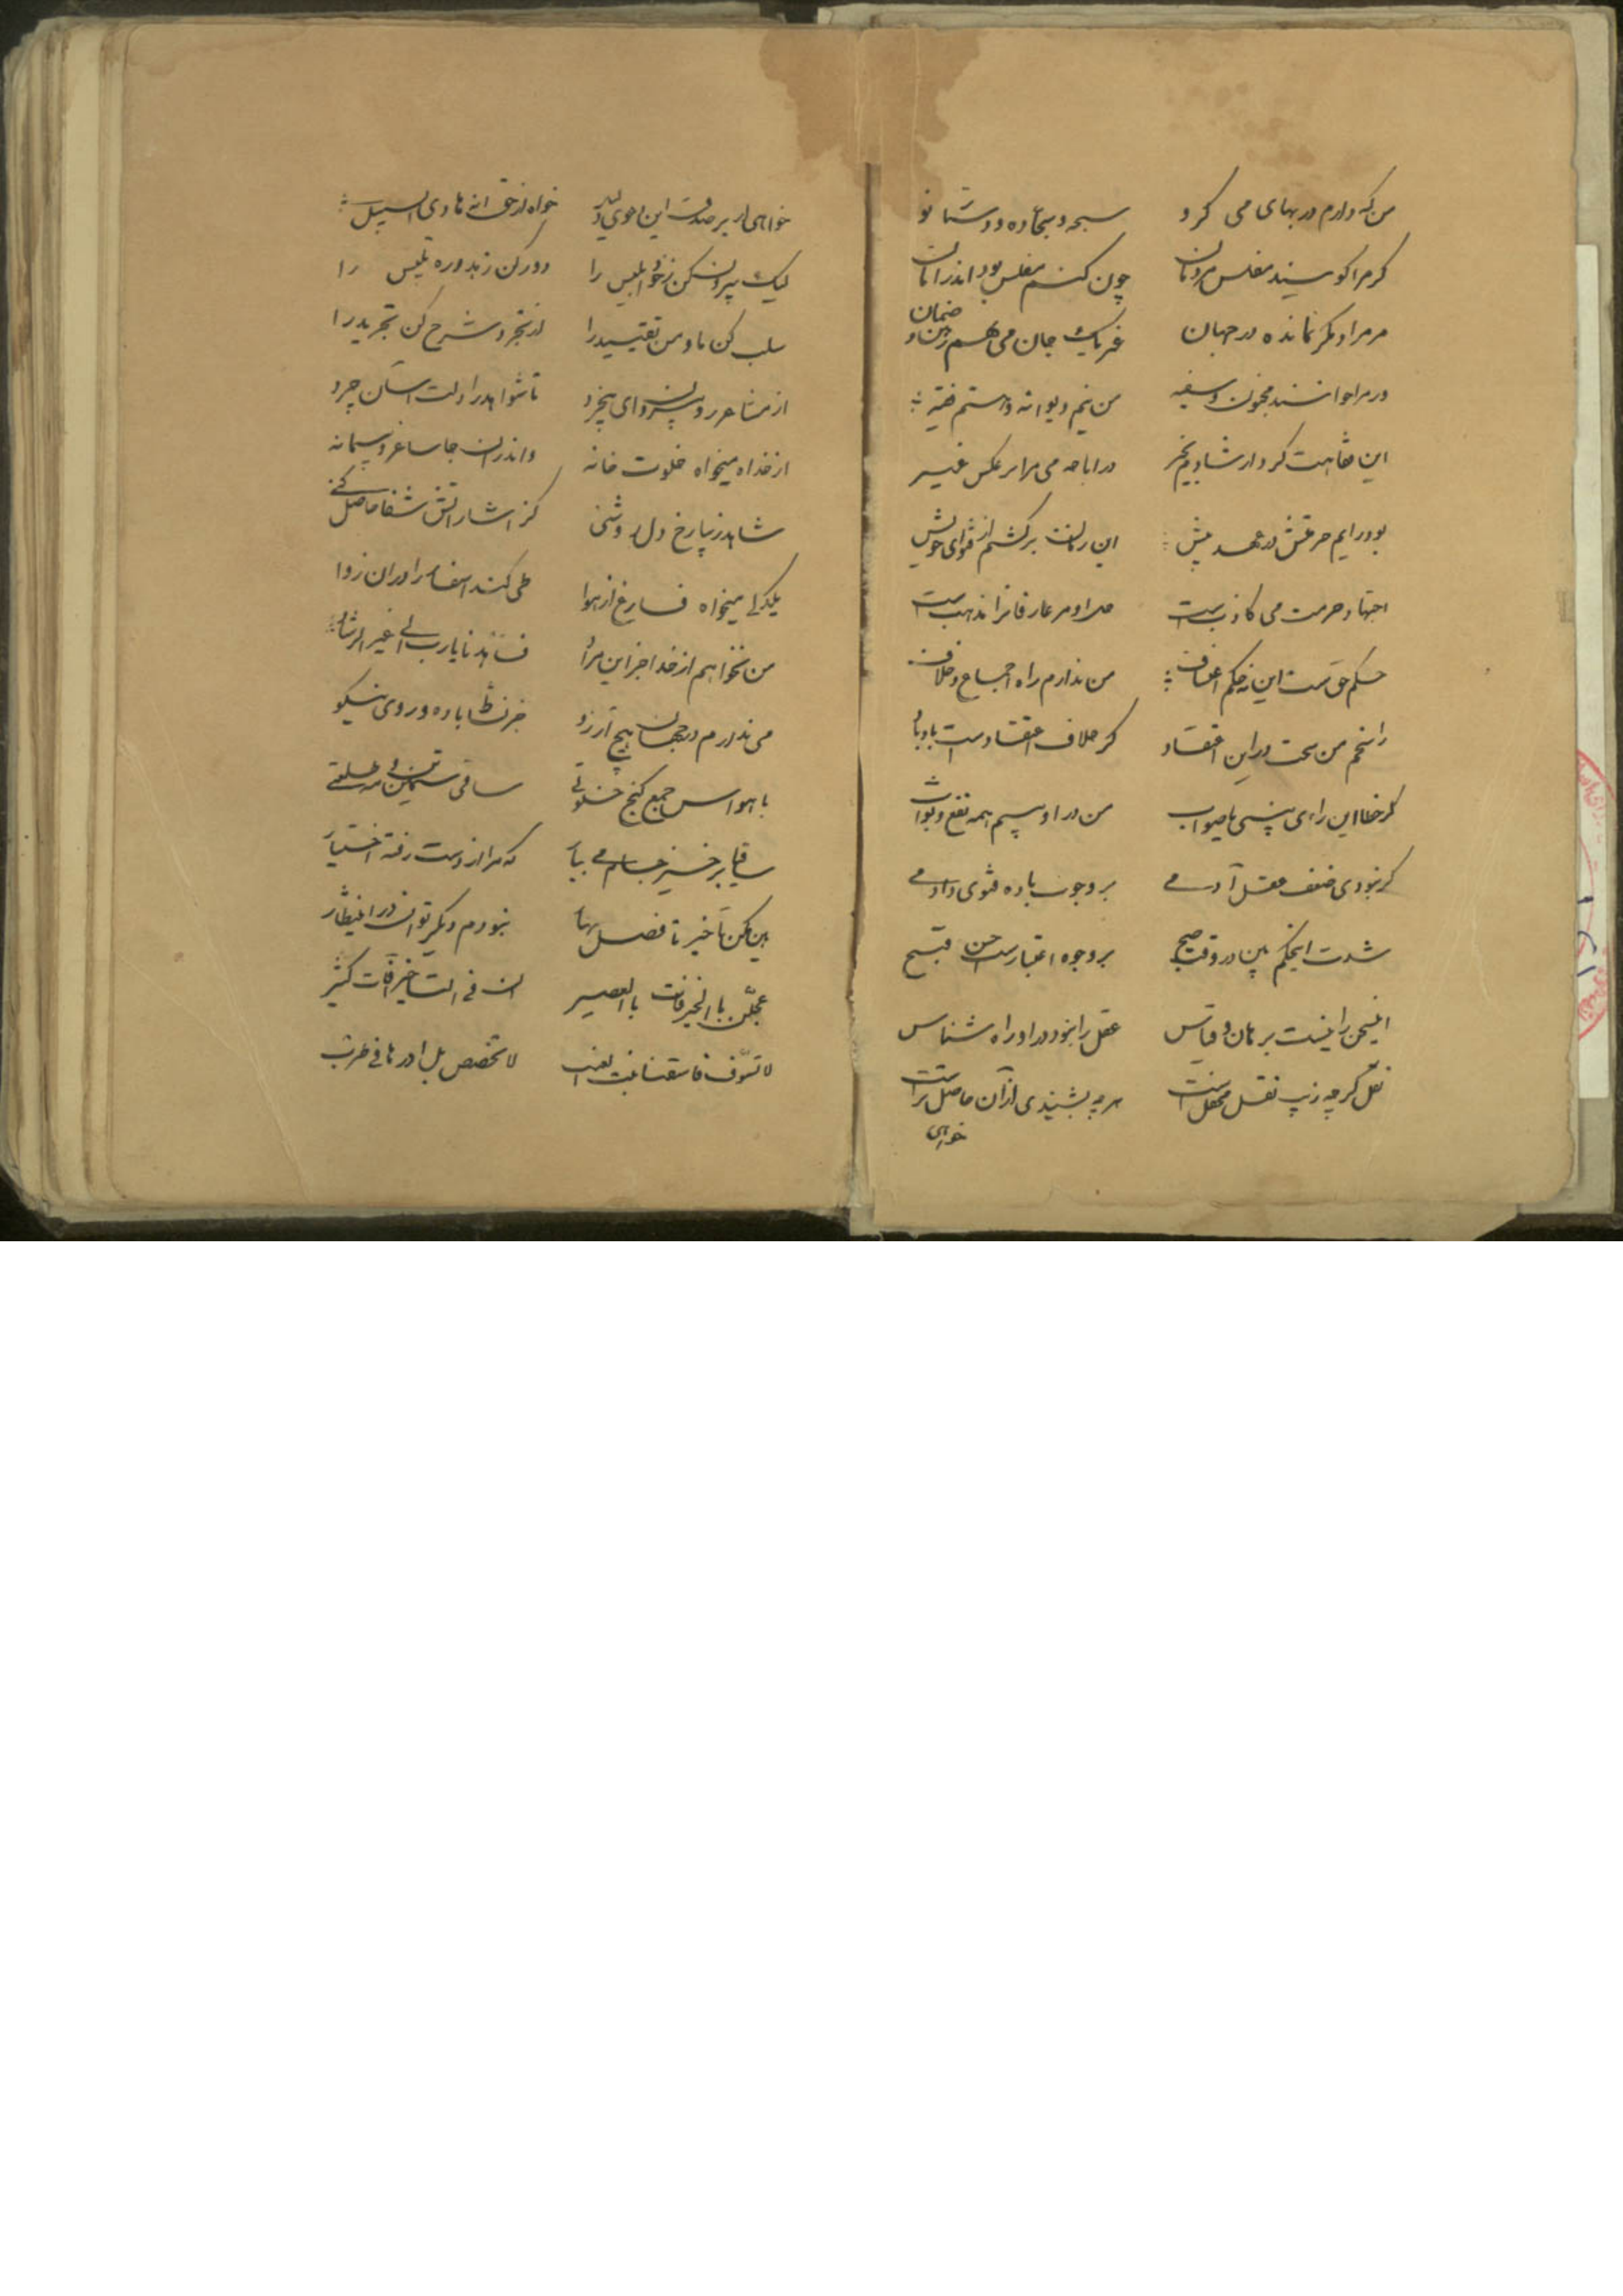 من که دارم در بهای می کرو سبحه و سجاده و دستار نو
کر مرا کویند مفلس مردمان چون کنم مفلس بود اندر امان
مر مرا دیگر نمانده در جهان غیر یک جان می دهم رهن و ضمان
ور مرا خوانند مجنون و سفیه من نیم دیوانه و هستم فقیه
این فقاهت کرد ارشادم بخیر در اباحه می مرا بر عکس غیر
بود رایم حرمتش در عهد پیش این زمان برکشتم از فتوای خویش
اجتهاد حرمت می کاذب است مر عارفانرا مذهب است
حکم حق است این نه حکم اعتساف من ندارم راه اجماع و خلاف
راسخم من سخت در این اعتقاد کر خلاف اعتقاد است باد باد
کر خطا این رای بینی یا صواب من در او بینم همه نفع و ثواب
کر نبودی ضعف عقل آدمی بر وجوب باده فتوی دادمی
شدت اینحکم بین در وقت صبح بر وجوه اعتبار است حسن قبح
اینسخن را نیست برهان و قیاس عقل را نبود در او راه شناس
نقل کر چه زیب نقل محفل است هر چه بشنیدی از آن حاصل تر است
خواهی
خواهی ار بر صدق این دعوی دلیل خواه از حق انه هادی السبیل
لیک بیرون کن ز خود ابلیس را دور کن زهد و ره تلبیس را
سلب کن ما و من تقیید را از تجرد شرح کن تجرید را
از مشاعر رو برون ای بیخرد تا شواهد را دلت آسان چرد
از خدا میخواه خلوت خانه و اندران جا ساغر و پیمانه
شاهد زیبا رخ و دل روشنی کز اشاراتش شفا حاصل کنی
یکدلی میخواه فارغ از هوا طی کند اسفار را در ان نوا
من نخواهم از خدا جز این مراد فاهدنا یارب الی خیر الرشاد
می ندارم در جهان هیچ آرزو جز نشاط باده و روی نیکو
با حواس جمع کنج خلوتی ساقی سیمین بر مه طلعتی
ساقیا برخیز جام می بیار که مرا از دست رفته اختیار
هین مکن تاخیر تا فصل بهار نبودم دیگر توان در انتظار
عجلن بالخیر بالعصیر ان فی التاخیر آفات کثیر
لا تسوف فاسقنا بنت العنب لا تخصص بل ادرها فی طرب